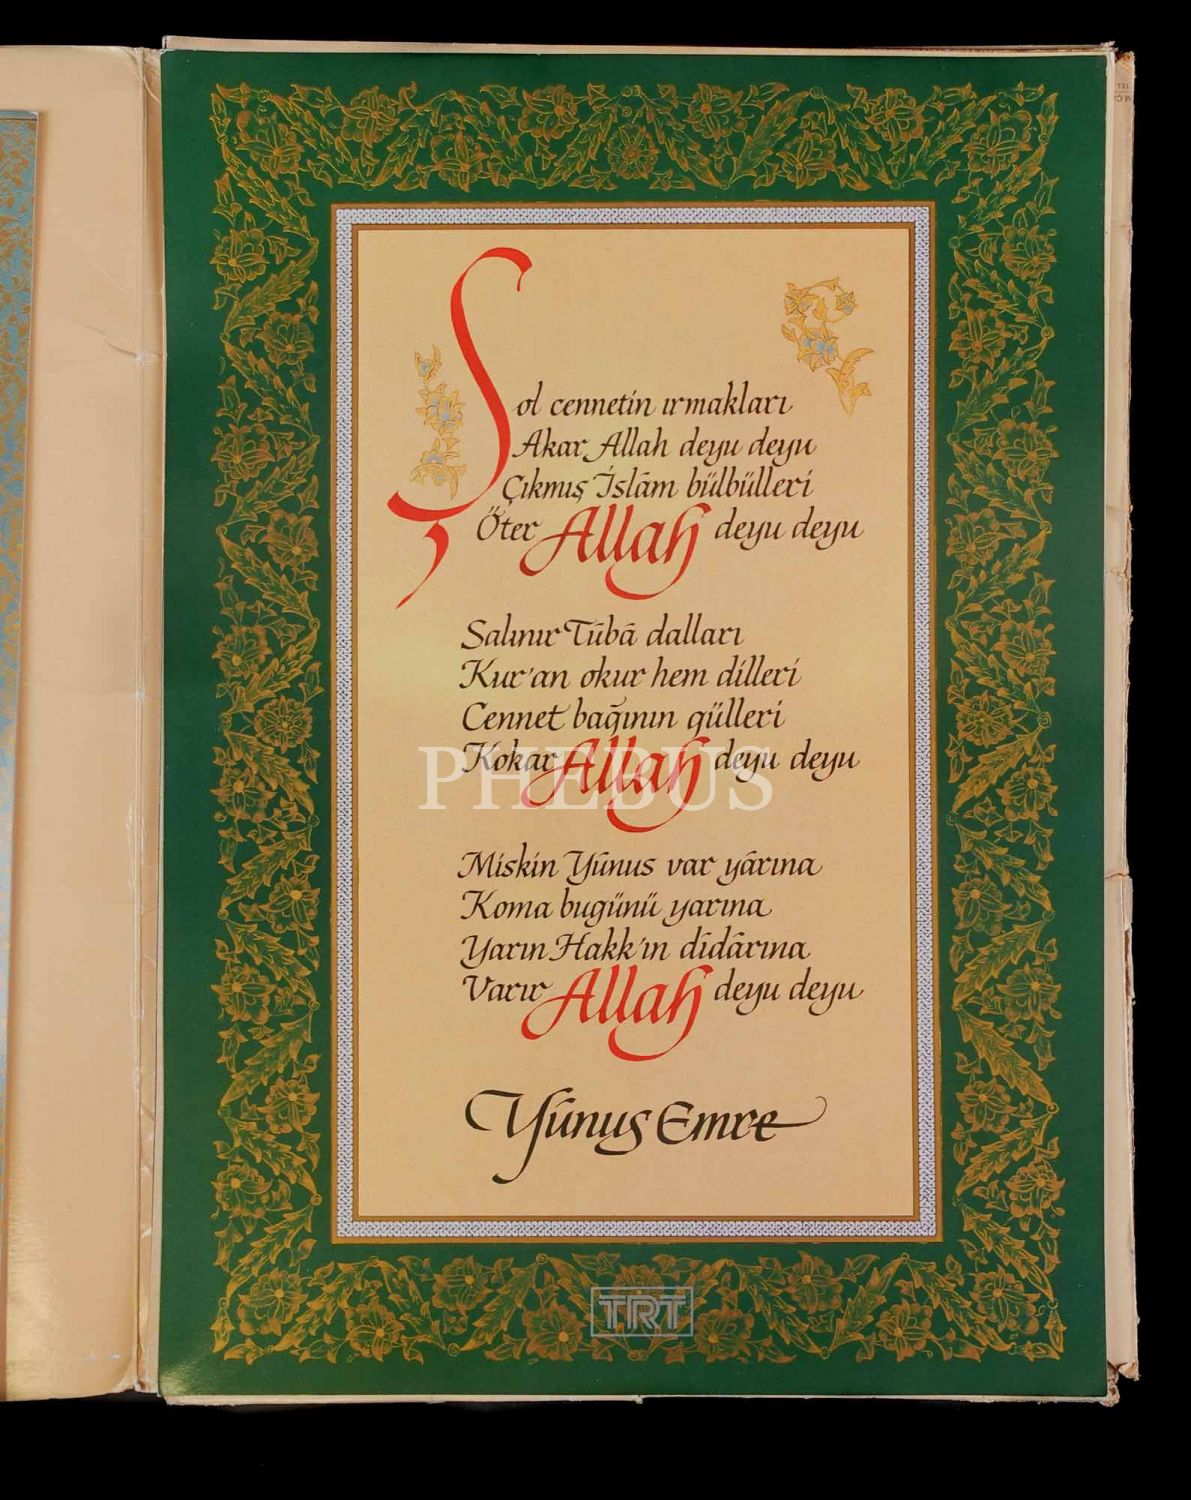 Şol cennetin ırmakları
Akar Allah deyu deyu
Çıkmış İslâm bülbülleri
Öter Allah deyu deyu
Salınır Tûbâ dalları
Kur'an okur hem dilleri
Cennet bağının gülleri
Kokar Allah deyu deyu
PHEBUS
Miskin Yûnus var yârına
Koma bugünü yarına
Yarın Hakk'ın dîdârına
Varır Allah deyu deyu
Yûnus Emre
TRT